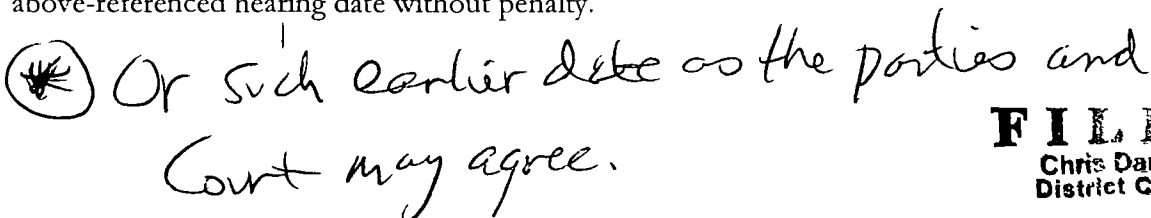 above-referenced hearing date without penalty.
Or such earlier date as the parties and
Court may agree.
FIL
Chris Dan
District C